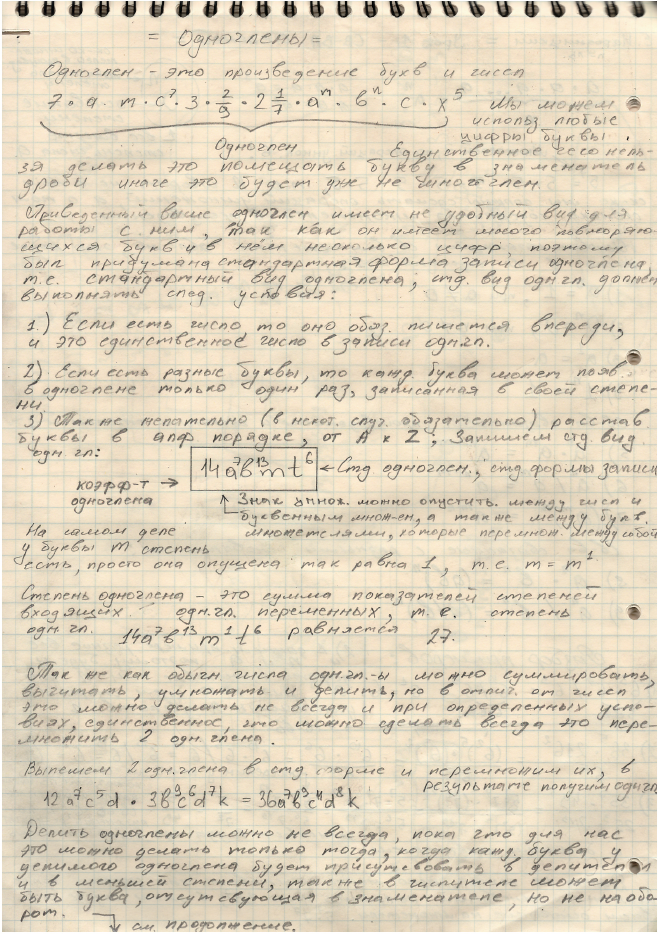 = Одночлены =
Одночлен - это произведение букв и чисел
7 · a · m · c⁷ · 3 · 2/9 · 2 1/7 · aᵐ · bⁿ · c · x⁵
Мы можем
использ любые
цифры буквы.
Одночлен
Единственное чего нель-
зя делать это помещать букву в знаменатель
дроби иначе это будет уже не одночлен.
Приведенный выше одночлен имеет не удобный вид для
работы с ним, так как он имеет много повторяю-
щихся букв и в нем несколько цифр, поэтому
был прибумана стандартная форма записи одночлена,
т.е. стандартный вид одночлена, стд. вид одн гл. должен
выполнять след. условия:
1.) Если есть число то оно обяз. пишется впереди,
и это единственное число в записи одн.гл.
2) Если есть разные буквы, то кажд. буква может появ
в одночлене только один раз, записанная в своей степе-
ни.
3) Также желательно (в некот. случ. обязательно) расстав
буквы в алф порядке, от A к Z; Запишем стд. вид
одн. гл:
14a⁷b¹³mt⁶ ← Стд одночлен., стд формы записи
коэфф-т →
одночлена
Знак умнож. можно опустить. между числ и
буквенным множ-ем, а также между букв.
множителями, которые перемнож. между собой
На самом деле
у буквы m степень
есть, просто она опущена так равна 1, т.е. m = m¹
Степень одночлена - это сумма показателей степеней
входящих одн.гл. переменных, т.е. степень
одн. гл. 14a⁷b¹³m¹t⁶ равняется 27.
Так же как обычн. числа одн.гл.-ы можно суммировать,
вычитать, умножать и делить, но в отлич. от чисел
это можно делать не всегда и при определенных усло-
виях, единственное, что можно сделать всегда это пере-
множить 2 одн.члена.
Выпешем 2 одн.члена в стд. форме и перемножим их, в
результате получим одночл
12 a⁷c⁵d · 3b⁹c⁶d⁷k = 36a⁷b⁹c¹¹d⁸k
Делить одночлены можно не всегда, пока что для нас
это можно делать только тогда, когда кажд. буква у
делимого одночлена будет присутсвовать в делителе
и в меньшей степени, также в числителе может
быть буква, отсутсвующая в знаменателе, но не наобо-
рот.
см. продолжение.